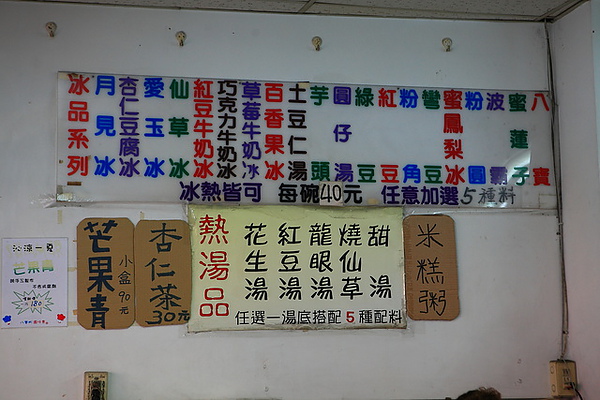 冰品系列
月見冰
杏仁豆腐冰
愛玉冰
仙草冰
紅豆牛奶冰
巧克力牛奶冰
草莓牛奶冰
百香果冰
土豆仁湯
芋頭
圓仔湯
綠豆
紅豆
粉角
彎豆
蜜鳳梨冰
粉圓
波霸
蜜蓮子
八寶
冰熱皆可 每碗40元 任意加選5種料
沁涼一夏
芒果青
180
芒果青
小盒90元
杏仁茶
30元
熱湯品
花生湯
紅豆湯
龍眼湯
燒仙草
甜湯
任選一湯底搭配5種配料
米糕粥